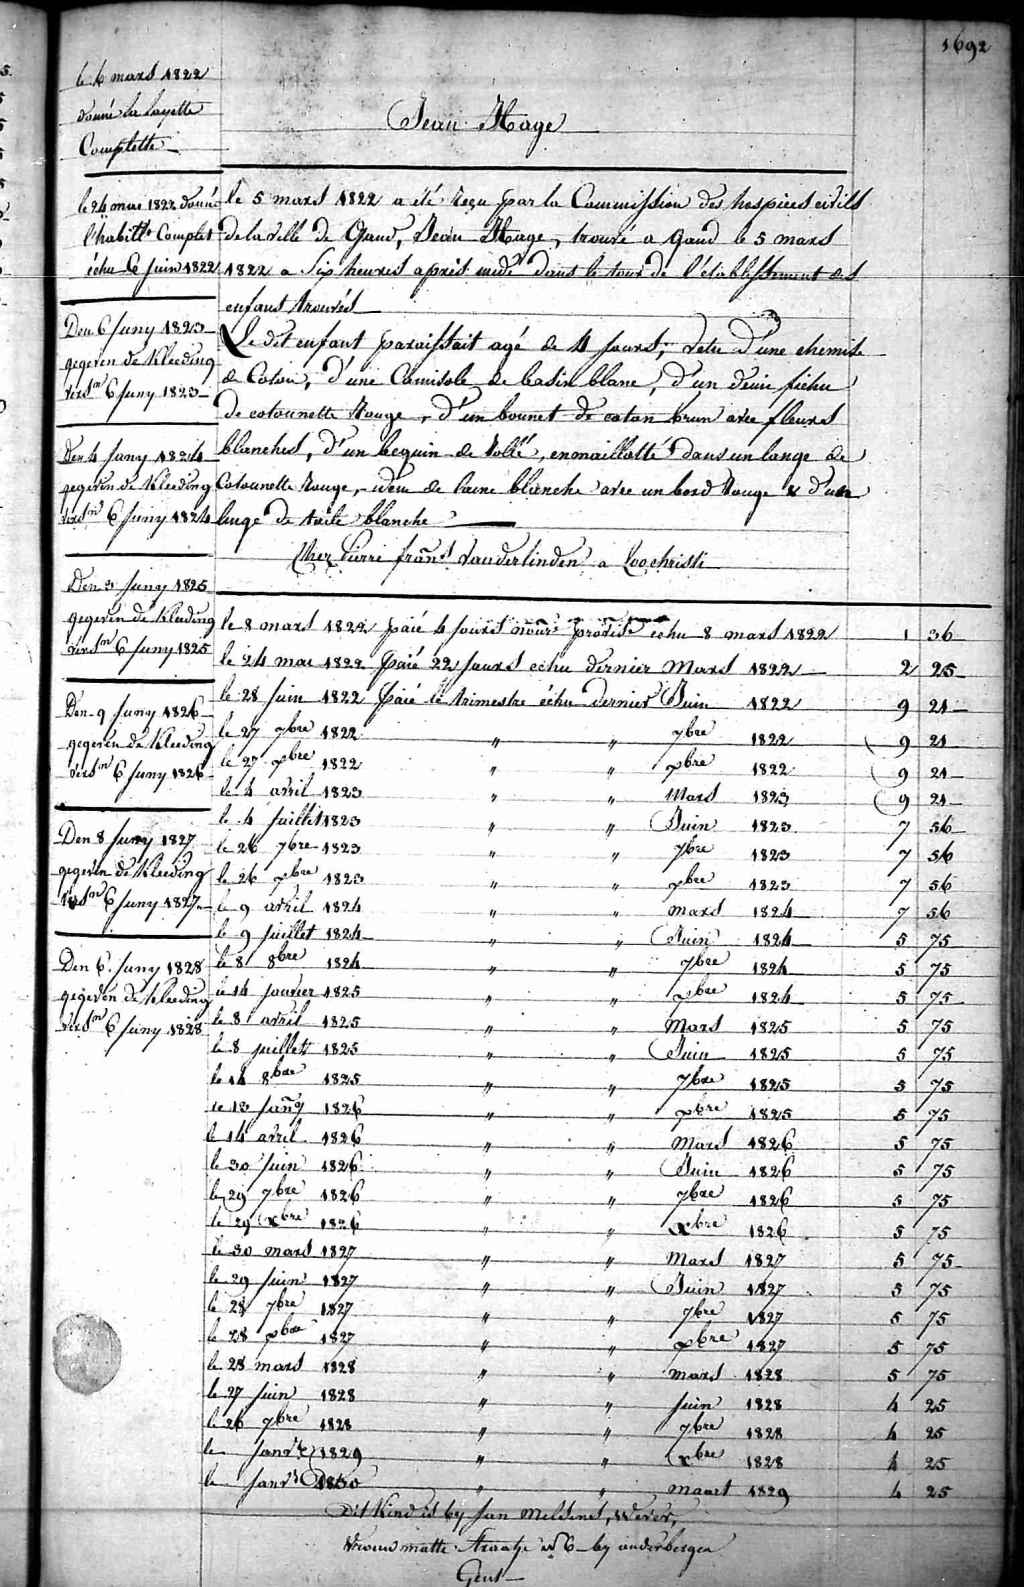 1692
le 6 mars 1822
donné la layette
Complette
Jean Hage
le 24 mai 1822 donné
l'habillt Complet
échu 6 Juin 1822
le 5 mars 1822 a été reçu par la Commission des hospices civils
de la ville de Gand, Jean Hage, trouvé a gand le 5 mars
1822 a six heures après midi dans le tour de l'établissement des
enfans trouvés
Le dit enfant paraissait agé de 4 Jours, vetu d'une chemise
de Coton, d'une Camisole de basin blanc, d'un demi fichu
de cotonnette rouge, d'un bonnet de coton brun avec fleurs
blanches, d'un beguin de , enmaillotté dans un lange de
Cotonnette rouge, idem de laine blanche avec un bord rouge & d'un
linge de toile blanche
Chez Pierre frans Vanderlinden a Loochristi
Den 6 Juny 1823
gegeven de Kleeding
versn 6 Juny 1823
Den 4 Juny 1824
gegeven de Kleeding
versn 6 Juny 1824
Den 3 Juny 1825
gegeven de Kleeding
versn 6 Juny 1825
Den 9 Juny 1826
gegeven de Kleeding
versn 6 Juny 1826
Den 8 Juny 1827
gegeven de Kleeding
versn 6 Juny 1827
Den 6 Juny 1828
gegeven de Kleeding
versn 6 Juny 1828
le 8 mars 1822 payé 4 jours échu 8 mars 1822 1 36
le 24 mai 1822 Payé 22 Jours echu dernier Mars 1822 2 25
le 28 Juin 1822 Payé le trimestre échu dernier Juin 1822 9 21
le 27 7bre 1822 " " 7bre 1822 9 21
le 27 xbre 1822 " " xbre 1822 9 21
le 4 avril 1823 " " Mars 1823 9 21
le 4 Juillet 1823 " " Juin 1823 7 56
le 26 7bre 1823 " " 7bre 1823 7 56
le 26 xbre 1823 " " xbre 1823 7 56
le 9 avril 1824 " " mars 1824 7 56
le 9 Juillet 1824 " " Juin 1824 5 75
le 8 8bre 1824 " " 7bre 1824 5 75
le 14 janvier 1825 " " xbre 1824 5 75
le 8 avril 1825 " " Mars 1825 5 75
le 8 juillet 1825 " " Juin 1825 5 75
le 14 8bre 1825 " " 7bre 1825 5 75
le 13 Janv 1826 " " xbre 1825 5 75
le 14 avril 1826 " " Mars 1826 5 75
le 30 Juin 1826 " " Juin 1826 5 75
le 29 7bre 1826 " " 7bre 1826 5 75
le 29 xbre 1826 " " Xbre 1826 5 75
le 30 mars 1827 " " Mars 1827 5 75
le 29 juin 1827 " " Juin 1827 5 75
le 28 7bre 1827 " " 7bre 1827 5 75
le 28 xbre 1827 " " xbre 1827 5 75
le 28 mars 1828 " " mars 1828 5 75
le 27 Juin 1828 " " juin 1828 4 25
le 26 7bre 1828 " " 7bre 1828 4 25
le Janv 1829 " " xbre 1828 4 25
le Janv 1830 " " maart 1829 4 25
Dit Kind is by Jan , wever,
Straatje No 6 by
Gent